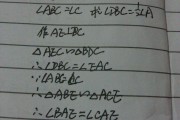 ∠ABC=∠C 求∠DBC=½∠A
作AE⊥BC
△AEC∽△BDC
∴∠DBC=∠EAC
∵∠ABC=∠C
∴△ABE∽△ACE
∴∠BAE=∠CAE